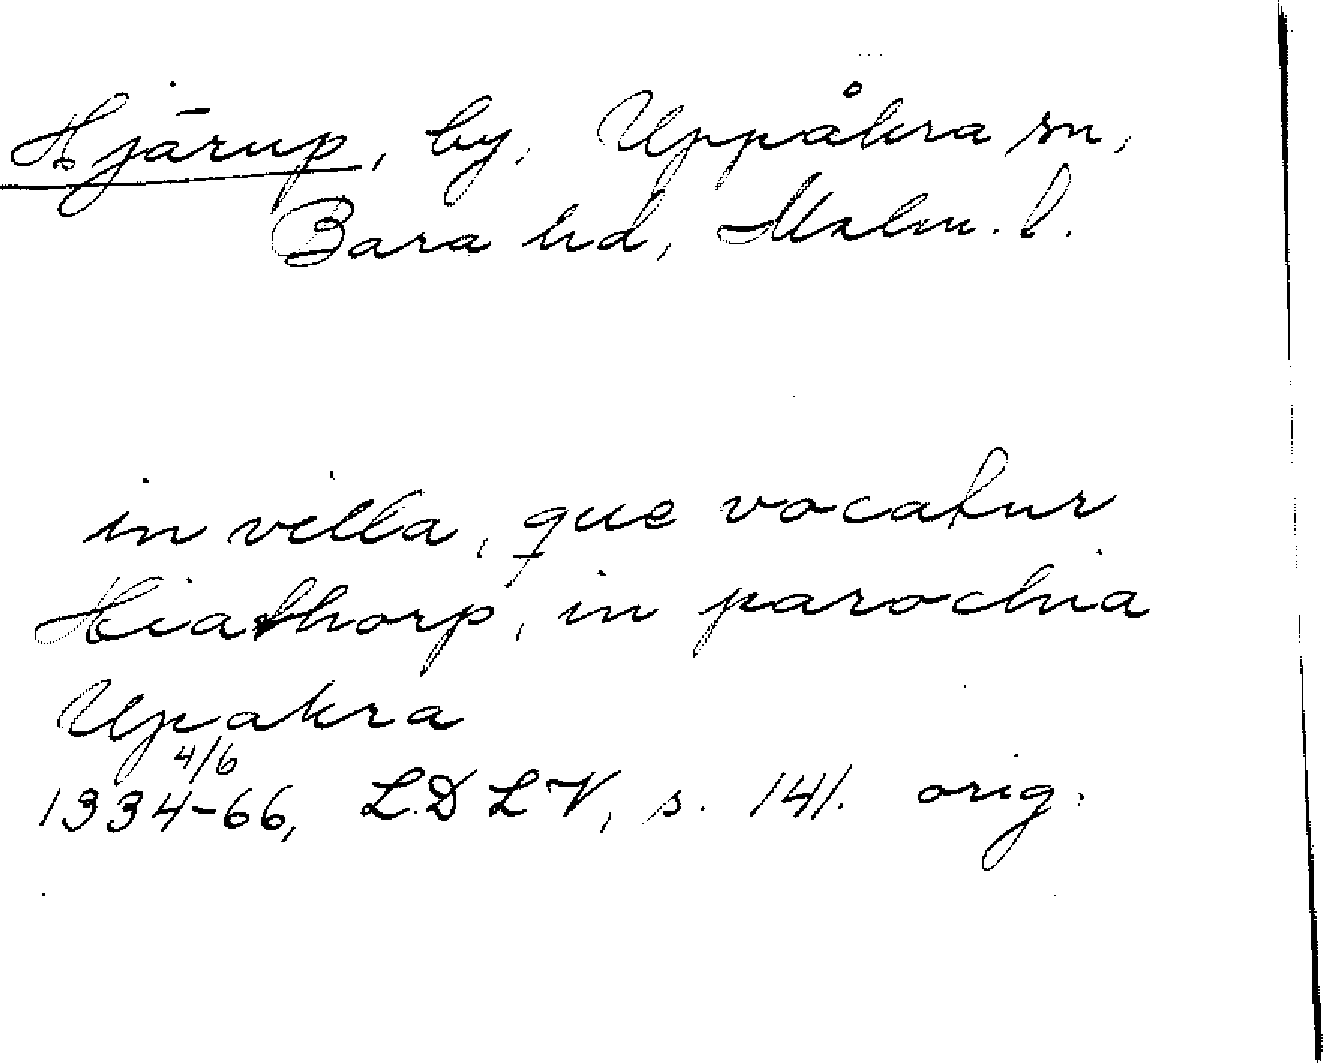 Hjärup, by, Uppåkra sn,
Bara hd, Malm. l.
in villa, que vocatur
Hiathorp, in parochia
Upakra
4/6
1334-66, L.D L V, s. 141. orig.